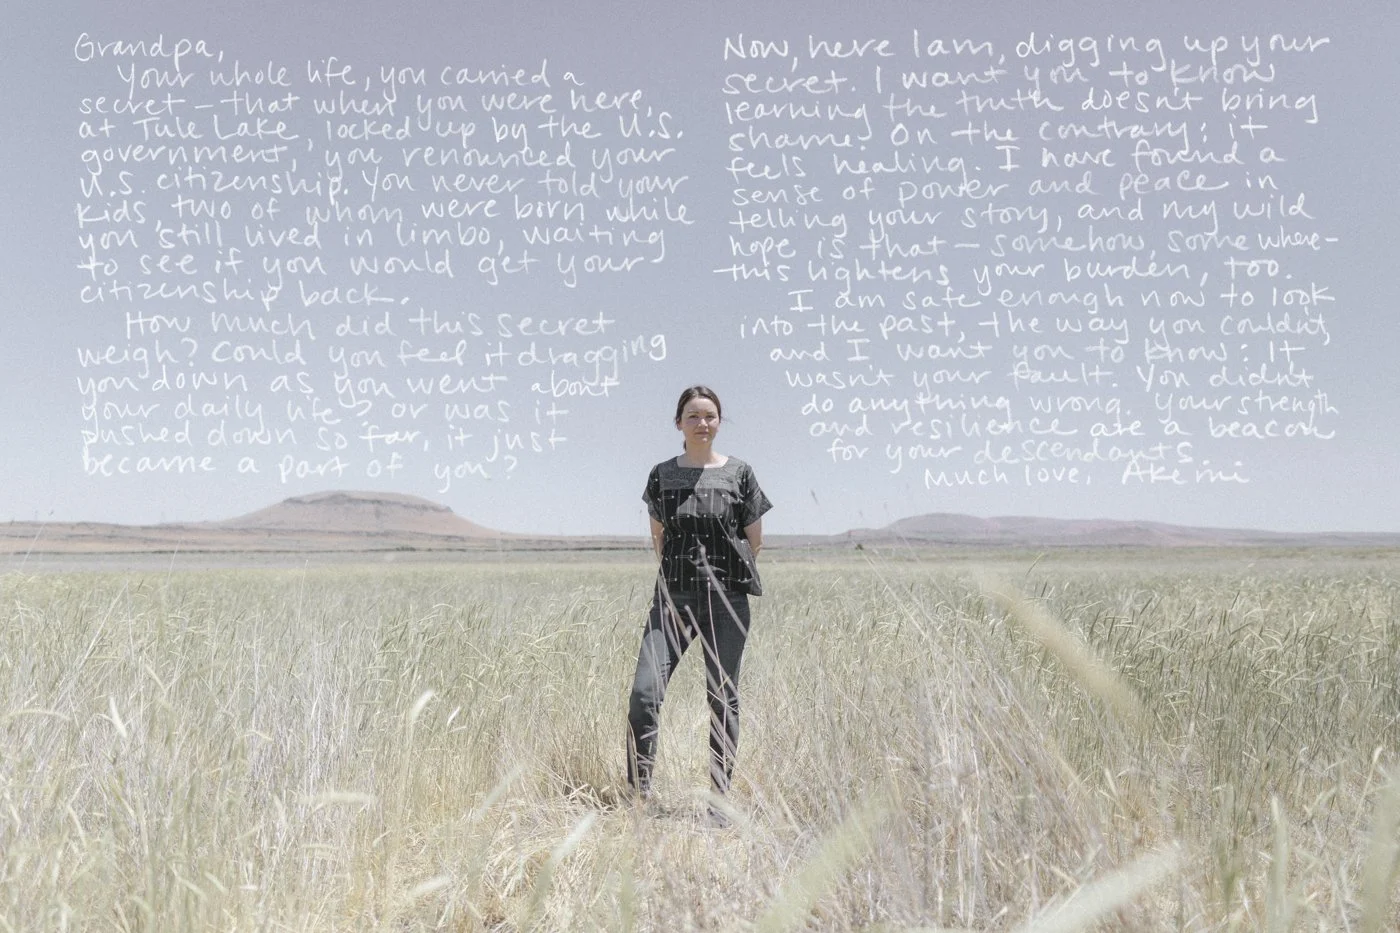 Grandpa,
Your whole life, you carried a
secret – that when you were here,
at Tule Lake, locked up by the U.S.
government, you renounced your
U.S. citizenship. You never told your
kids, two of whom were born while
you still lived in limbo, waiting
to see if you would get your
citizenship back.
How much did this secret
weigh? Could you feel it dragging
you down as you went about
your daily life? or was it
pushed down so far, it just
became a part of you?
Now, here I am, digging up your
secret. I want you to know
learning the truth doesn't bring
shame. On the contrary: it
feels healing. I have found a
sense of power and peace in
telling your story, and my wild
hope is that – somehow, somewhere –
this lightens your burden, too.
I am safe enough now to look
into the past, the way you couldn't,
and I want you to know: It
wasn't your fault. You didn't
do anything wrong. Your strength
and resilience are a beacon
for your descendants.
Much love, Akemi